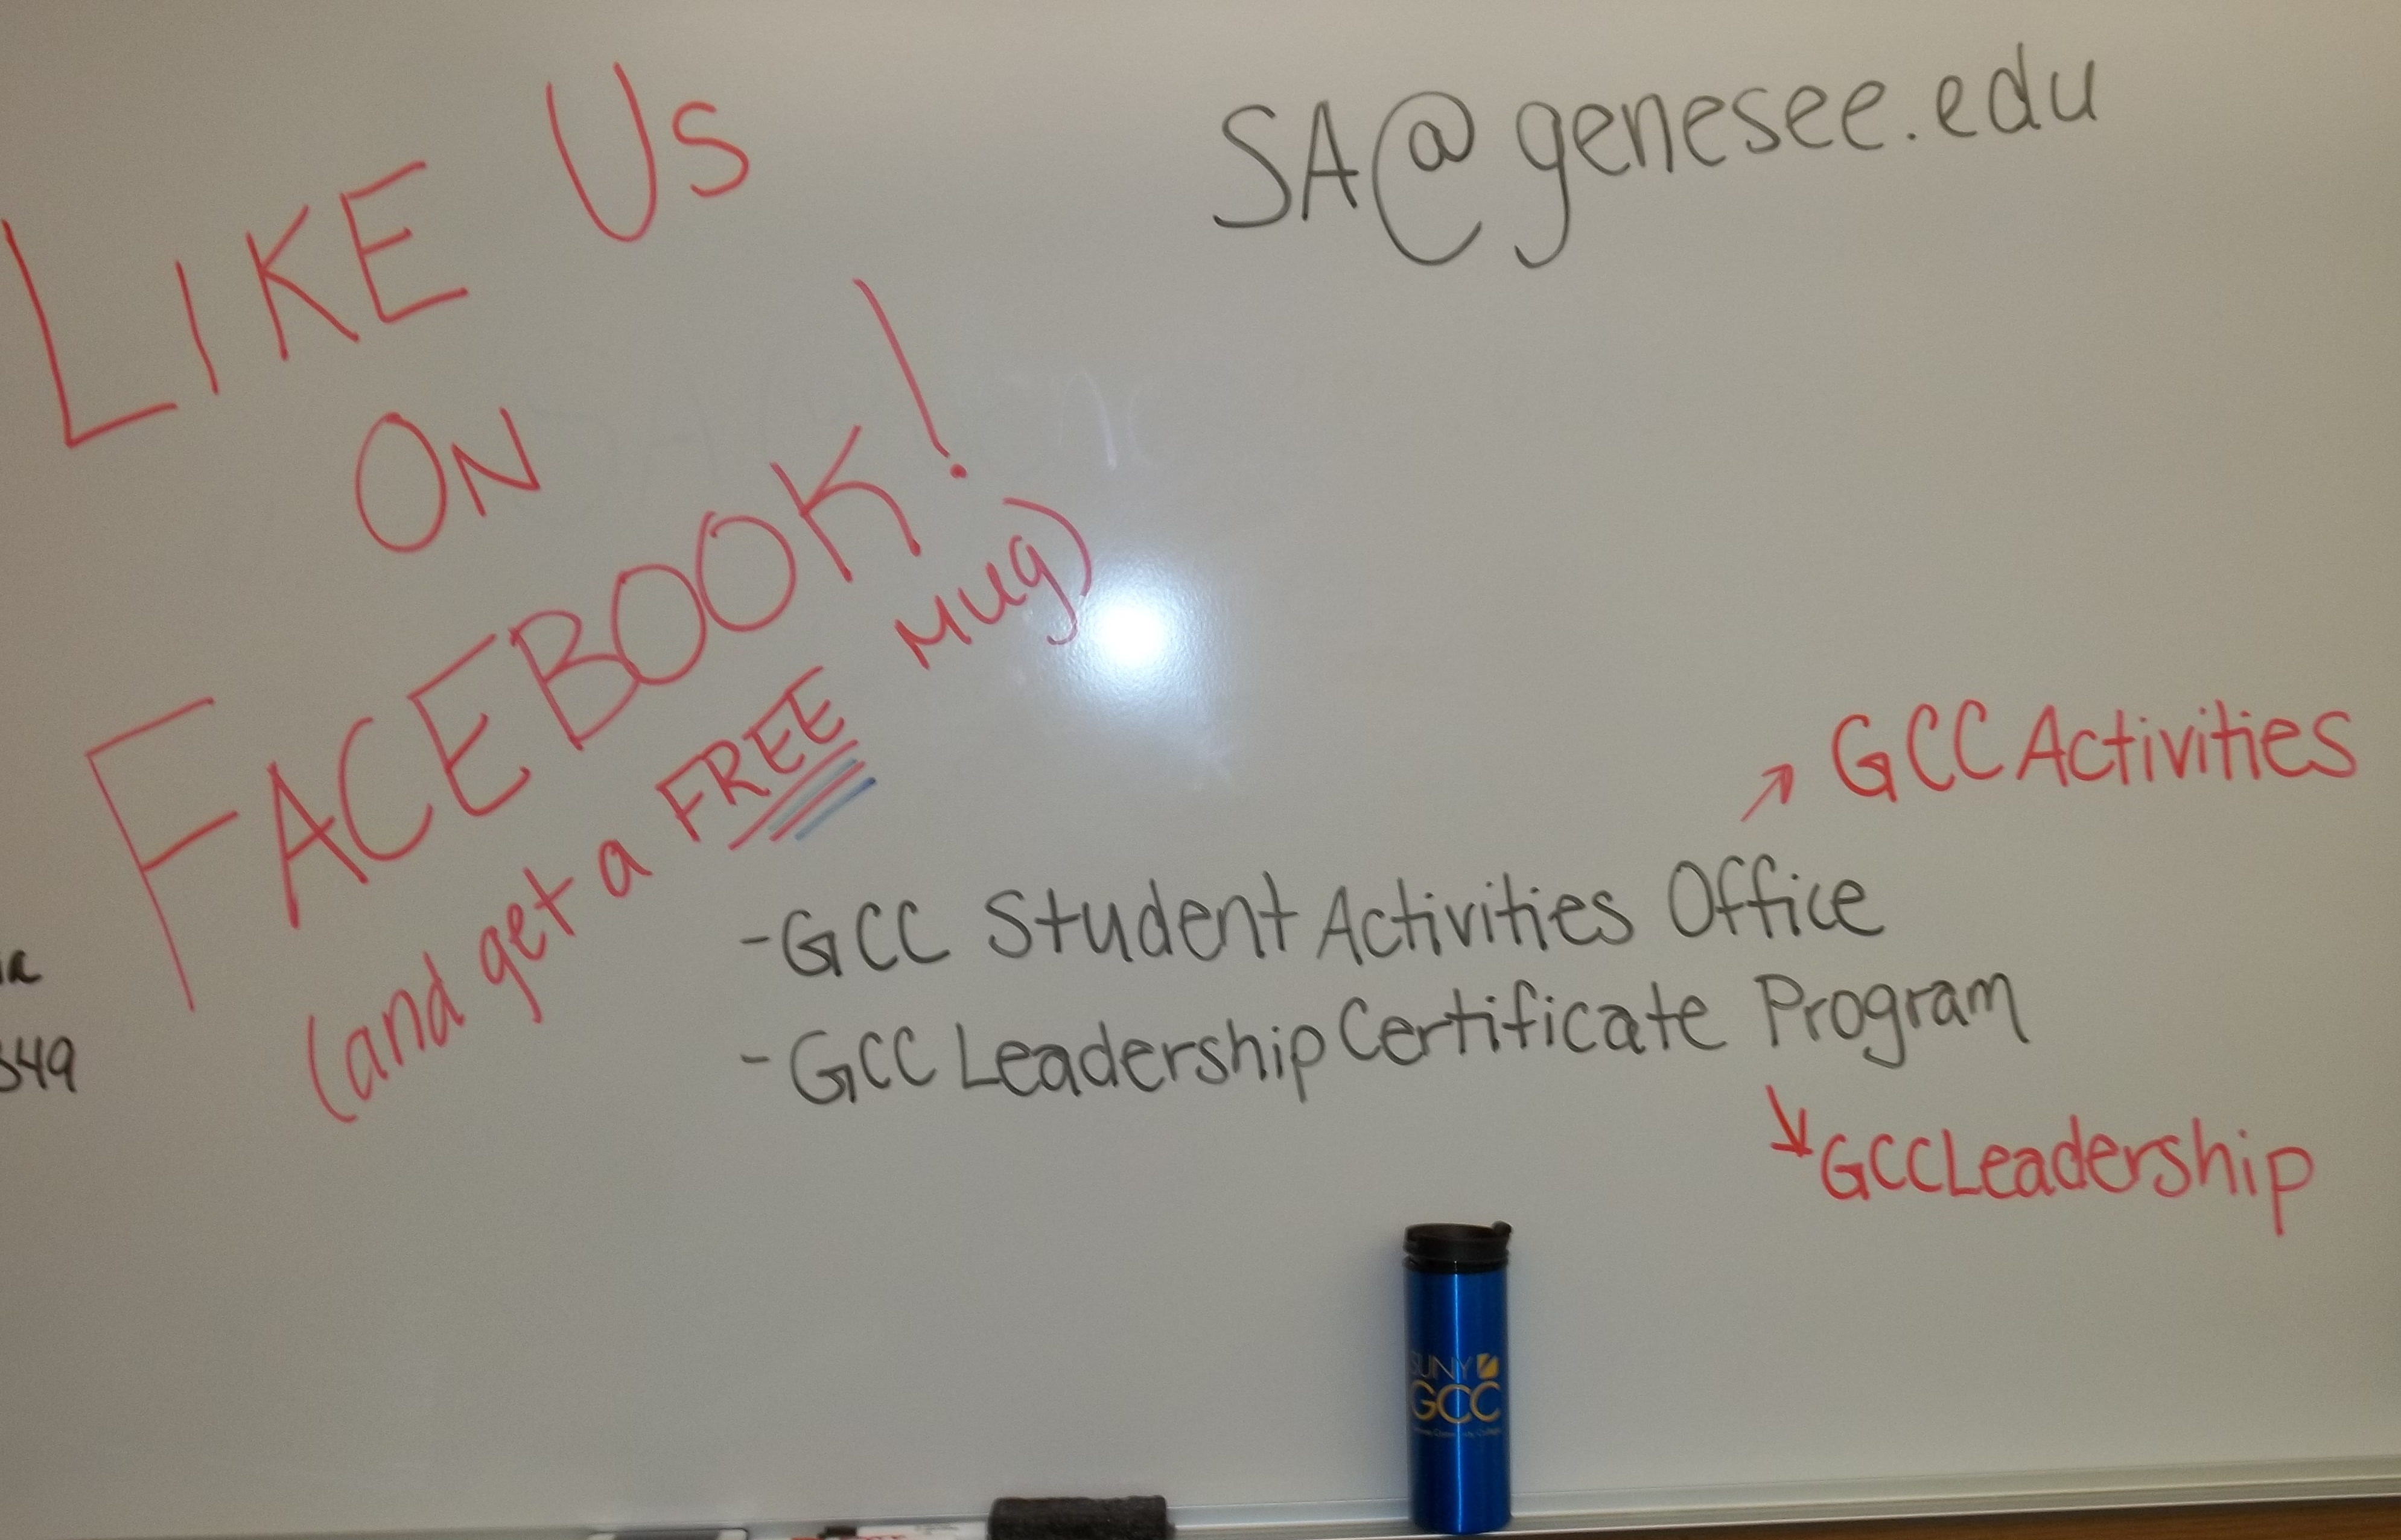 LIKE Us
ON
FACEBOOK!
(and get a FREE Mug)
SA@genesee.edu
GCCActivities
-GCC Student Activities Office
-GCC Leadership Certificate Program
GCCLeadership
349
SUNY
GCC